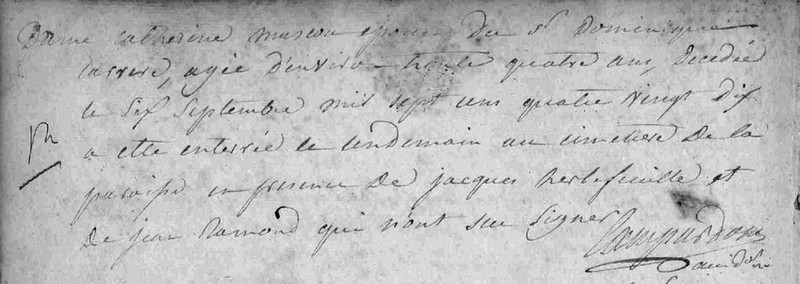 Dame Catherine mascou epouse du Sr Dominique
Carrere, agée d'enviro trente quatre ans, decedée
le Six Septembre mil sept cens quatre vingt dix
a etté enterrée le lendemain au cimetiere de la
paroisse en presence de jacques herbefeuille et
de jean Ramond qui n'ont seu signer